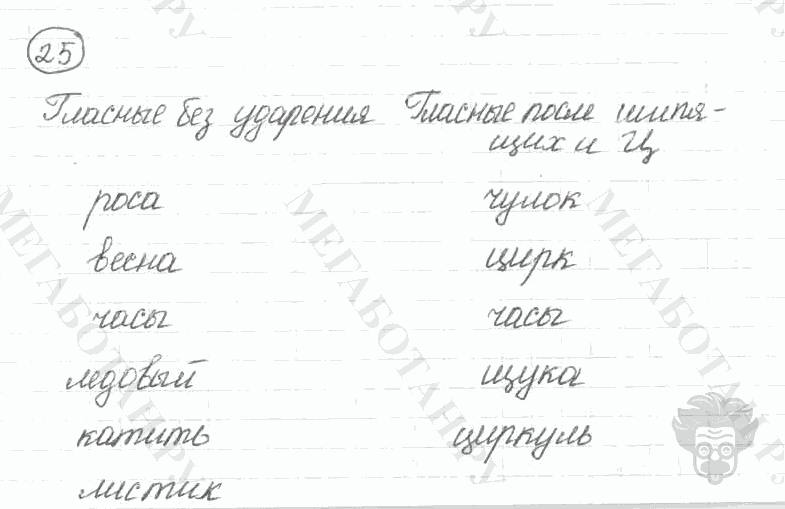 25
Гласные без ударения Гласные после шипя-
щих и Ц
роса чулок
весна цирк
часы часы
ледовый щука
катить циркуль
листик
МЕГАБОТАН.РУ МЕГАБОТАН.РУ МЕГАБОТАН.РУ